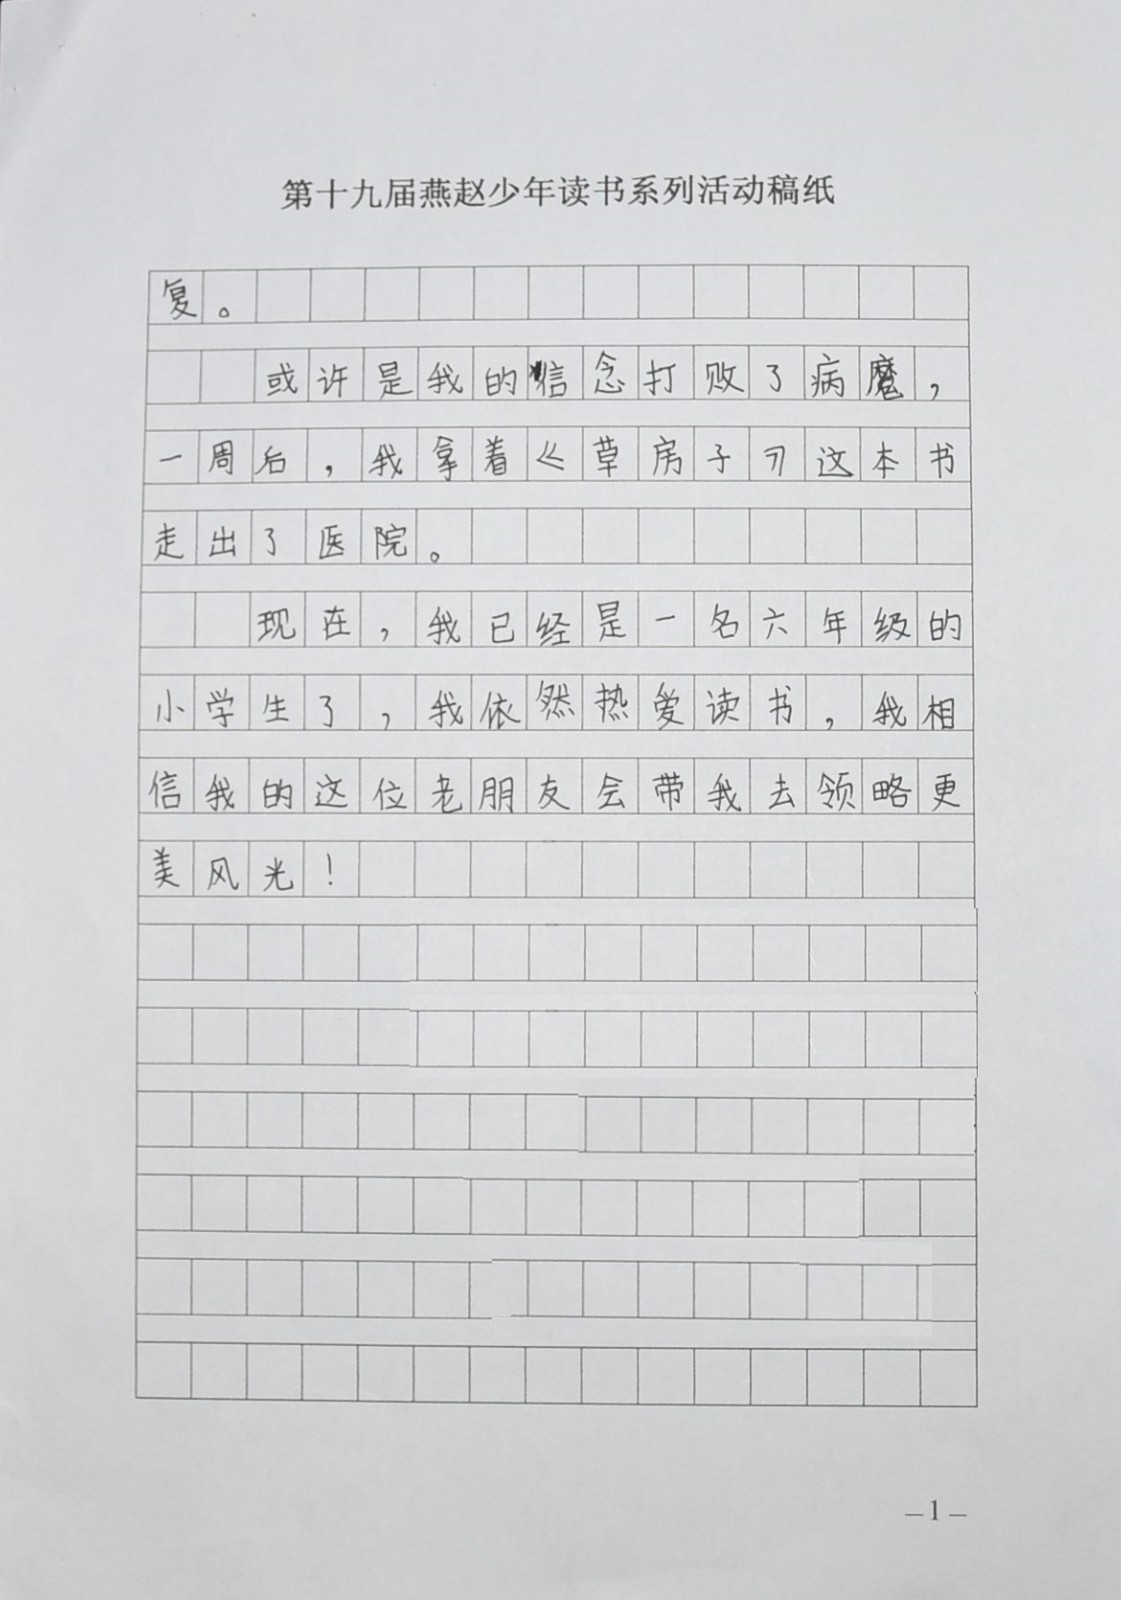 第十九届燕赵少年读书系列活动稿纸
复。
或许是我的信念打败了病魔，
一周后，我拿着《草房子》这本书
走出了医院。
现在，我已经是一名六年级的
小学生了，我依然热爱读书，我相
信我的这位老朋友会带我去领略更
美风光！
—1—